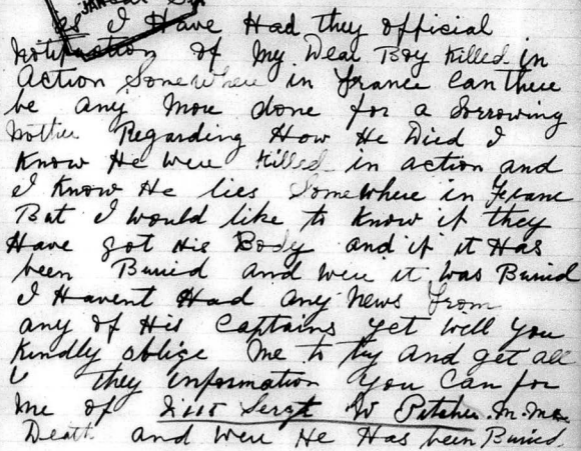 JAN
as I Have Had they official
notification of My Dear Boy Killed in
Action Somewhere in france Can there
be any More done for a Sorrowing
Mother Regarding How He Died I
Know He were Killed in action and
I Know He lies Somewhere in France
But I would like to Know if they
Have got His Body and if it Has
been Buried and were it was Buried
I Havent Had any News from
any of His Captains yet will you
Kindly oblige Me to try and get all
they information you Can for
Me of Sergt W Pitcher
Death and were He Has been Buried.